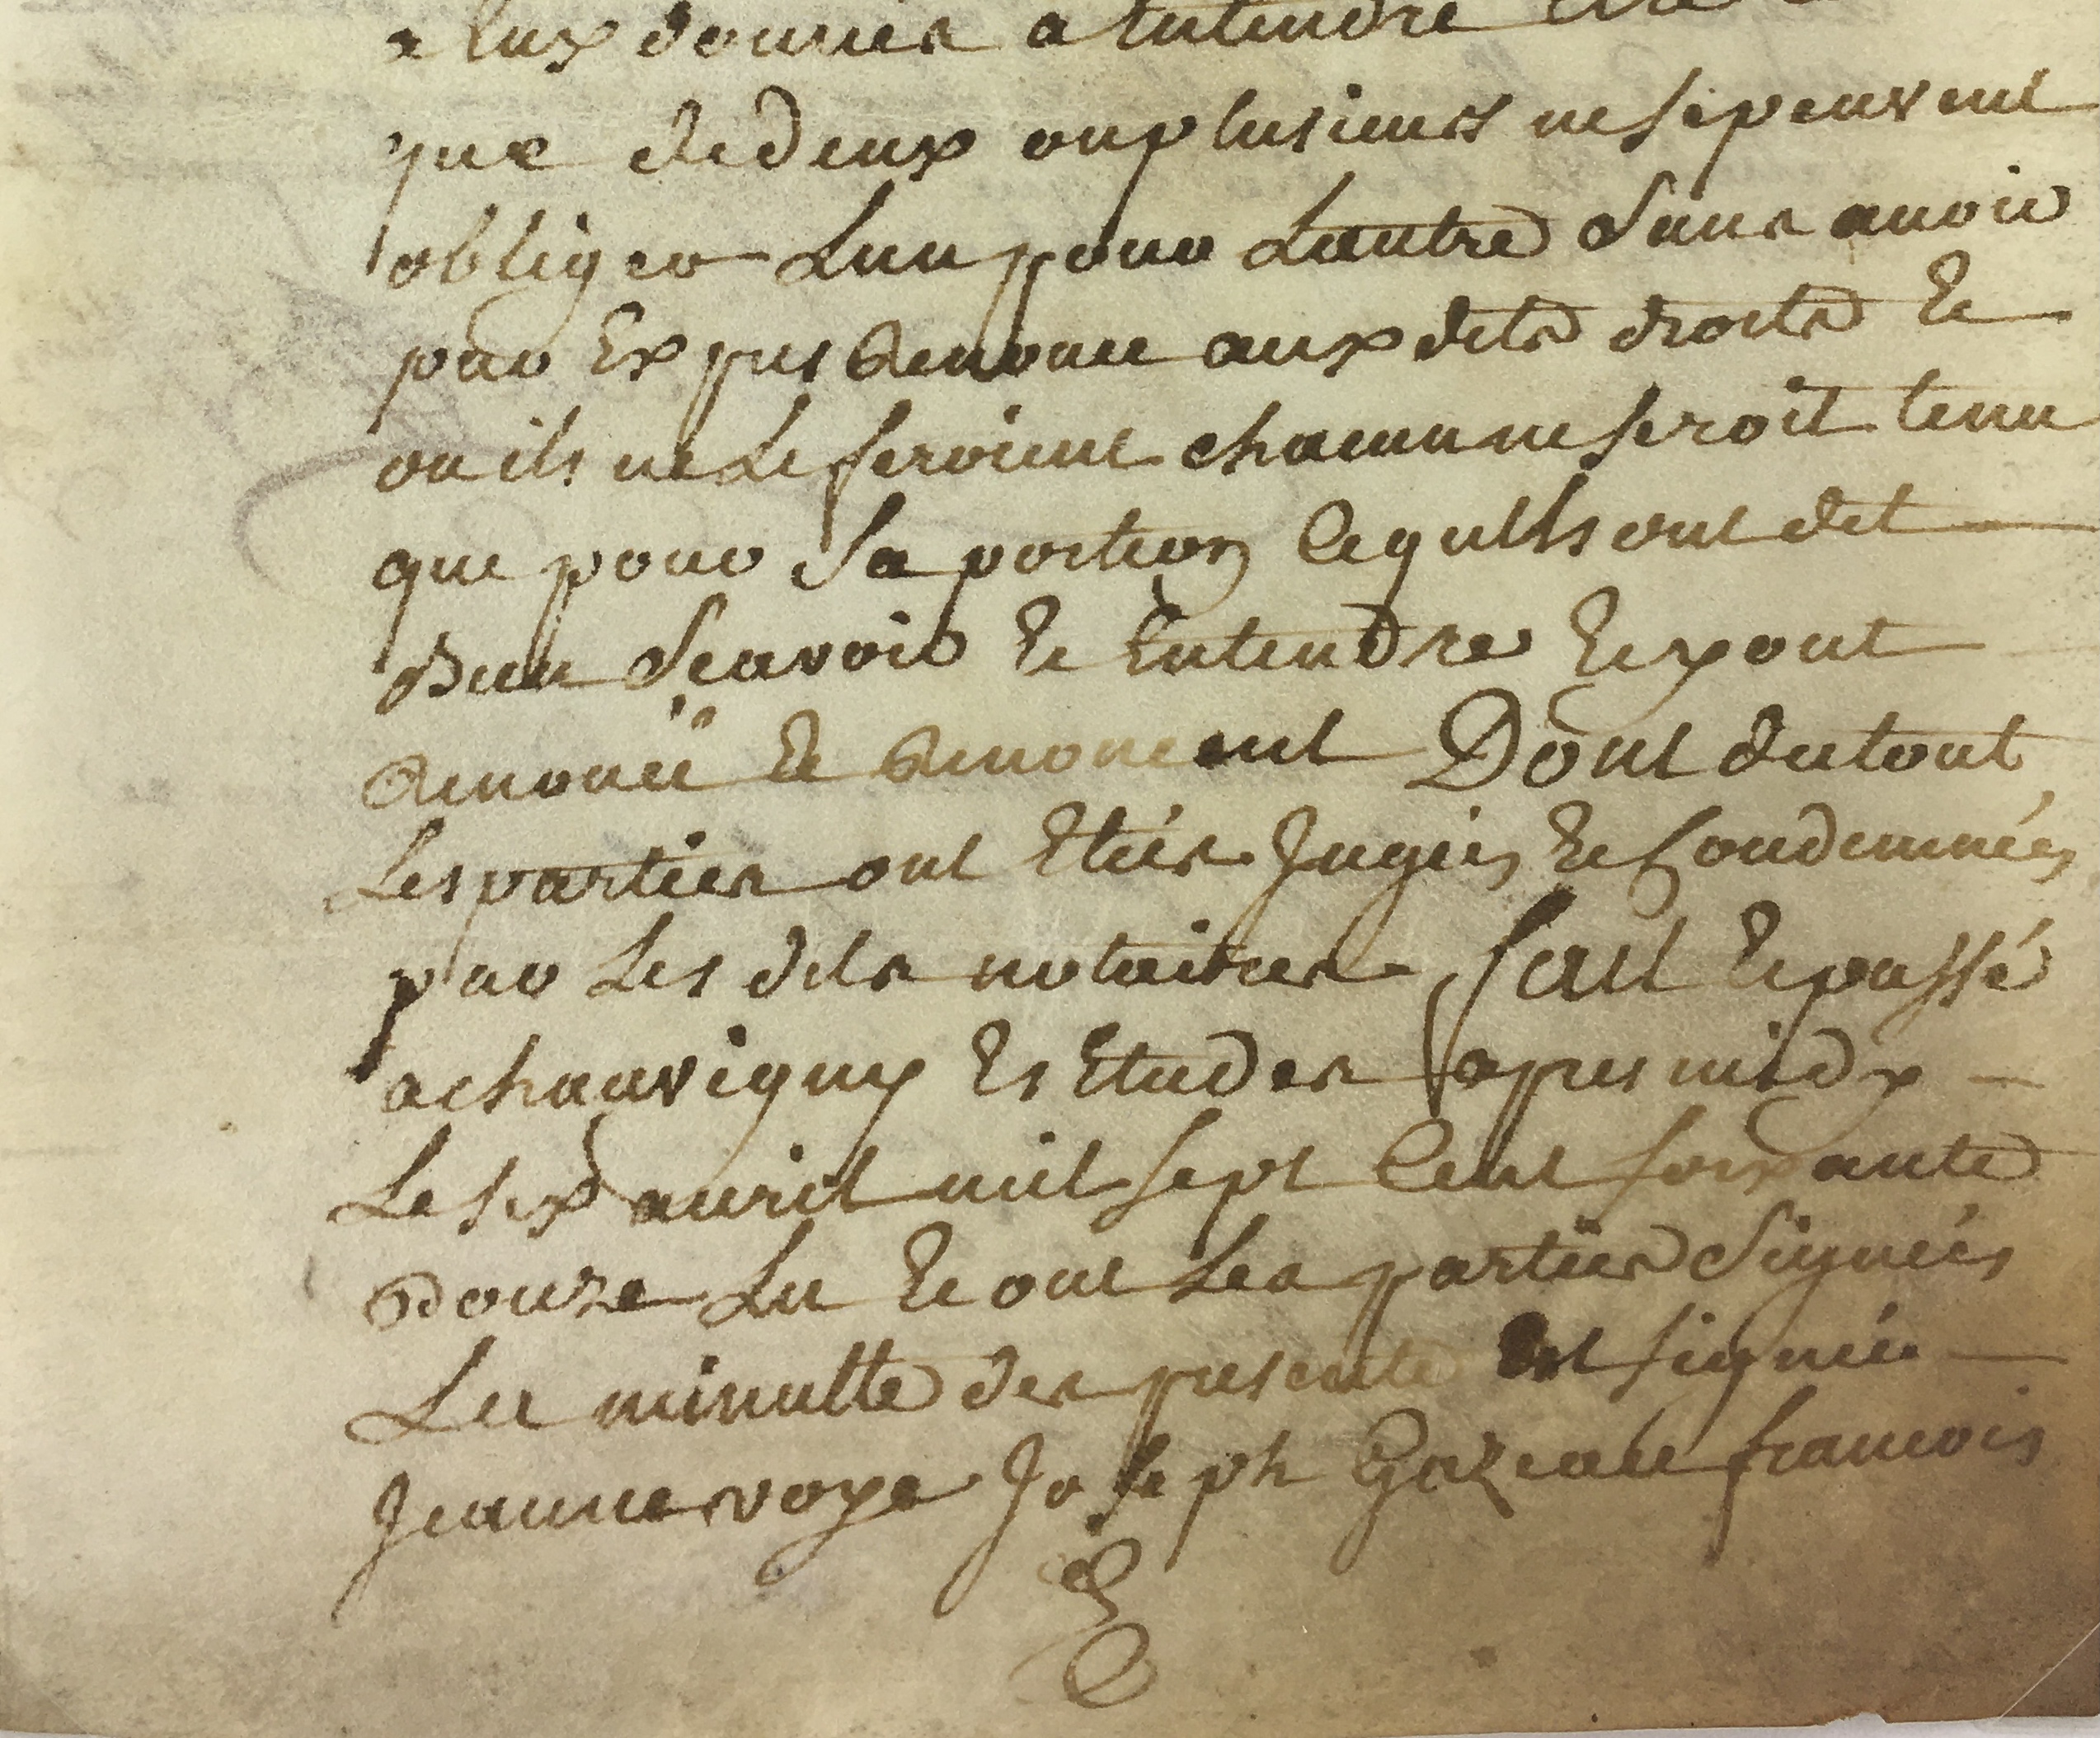 a Eux donnés a Entendre Etre
que de deux ou plusieurs ne se peuvent
obliger Lun pour Lautre Sans avoir
par Expres Renoncé aux dits droits Et
ou ils ne Le feroient chacun ne seroit tenu
que pour Sa portion Ce quils ont dit
Bien Scavoir Et Entendre Et y ont
Renoncé Et Renoncent Dont du tout
Les parties ont Etées Jugées Et Condemnées
par Les dits notaires fait Et passé
a chauvigny Es Etudes apres midy
Le six avril mil sept Cent soixante
Douze Lu Et ont Les parties Signées
La minutte des presente Est signée
Jeanne voye Joseph francois